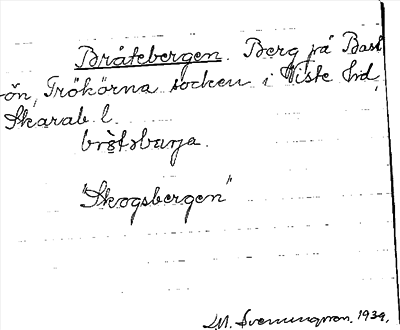 Bråtebergen. Berg på Bast-
ön, Trökörna socken i Viste hd,
Skarab. l.
"Skogsbergen"
M. Svenungsson. 1934.